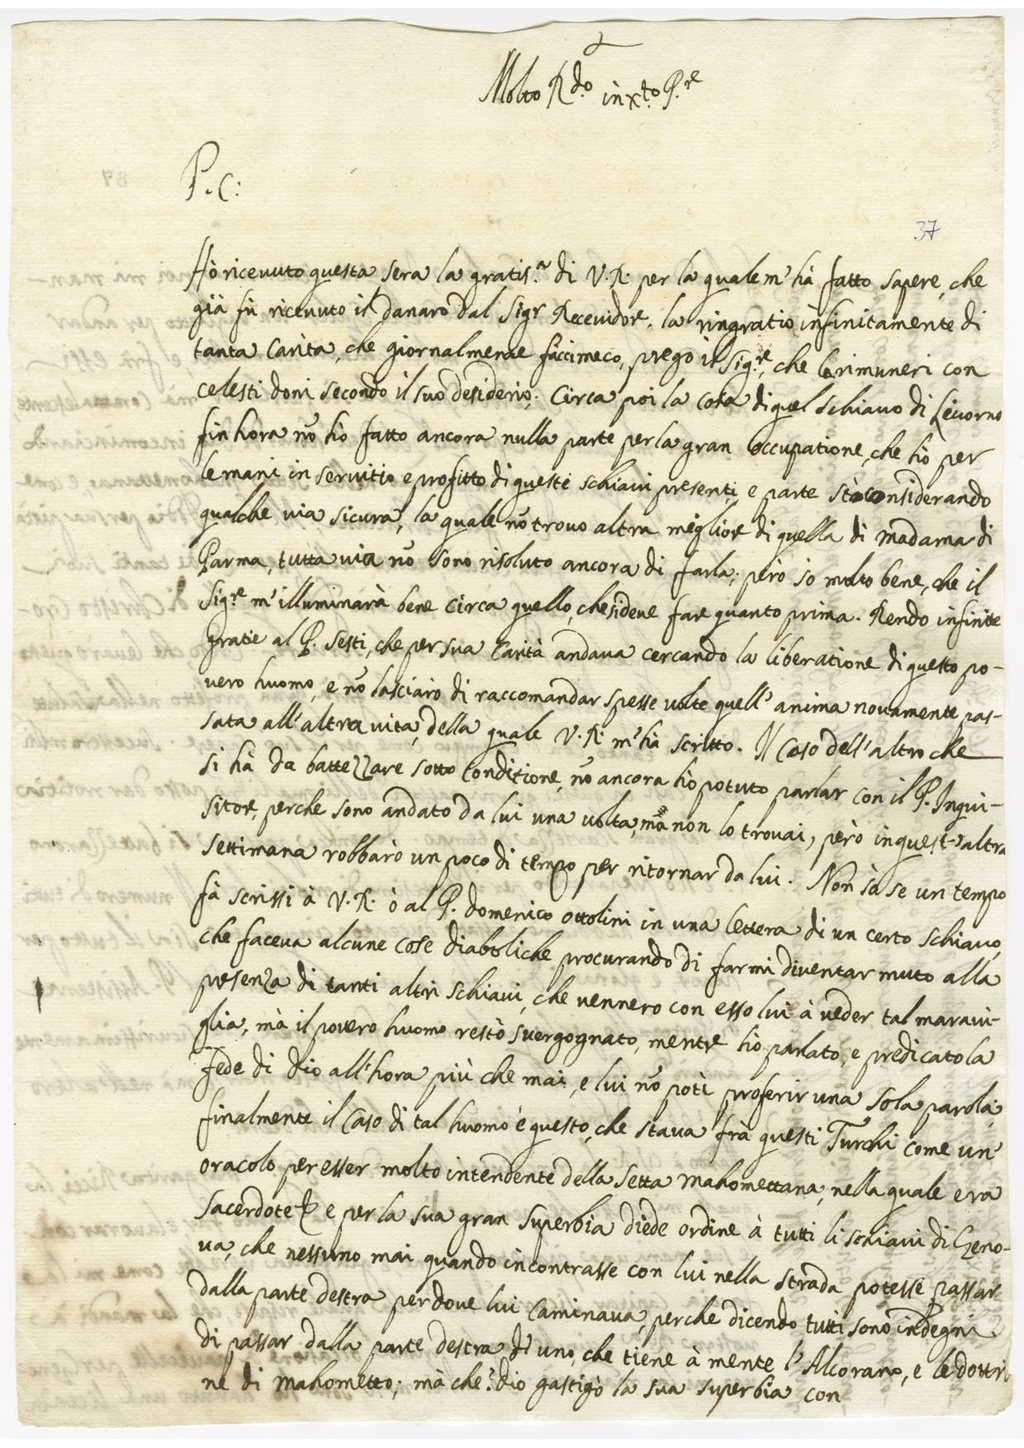 Molto R.do in x.to P.re
P. C:
37
Hò riceuuto questa sera la gratis.a di V. R. per la quale m'hà fatto sapere, che
già fù riceuuto il danaro dal Sig.r Receuidore, la ringratio infinitamente di
tanta Carita, che giornalmente fà cimeco, prego il Sig.re, che la rimuneri con
celesti doni secondo il suo desiderio. Circa poi la cosa di quel schiauo di Liuorno
fin hora nõ hò fatto ancora nulla parte per la gran occupatione, che hò per
le mani in seruitio e profitto di questi schiaui presenti, e parte stò considerando
qualche via sicura, la quale nõ trouo altra megliore di quella di Madama di
Parma, tutta uia nõ sono risoluto ancora di farla; però so molto bene, che il
Sig.re m'illuminarà bene circa quello, che si deue fare quanto prima. Rendo infinite
gratie al P. Sesti, che per sua Carità andaua cercando la liberatione di questo po-
uero huomo, e nõ lasciarò di raccomandar spesse uolte quell'anima nouamente pas-
sata all'altra vita, della quale V. R. m'hà scritto. Il Caso dell'altro che
si hà da battezzare sotto Conditione, nõ ancora hò potuto parlar con il P. Inqui-
sitor, perche sono andato da lui una uolta, mà non lo trouai, però in quest'altra
Settimana robbarò un poco di tempo per ritornar da lui. Non sà se un tempo
fà scrissi à V. R. ò al P. Domenico Ottolini in una lettera di un certo schiauo,
che faceua alcune cose diaboliche procurando di farmi diuentar muto alla
presenza di tanti altri schiaui, che uennero con esso lui à ueder tal maraui-
glia, mà il pouero huomo restò suergognato, mentre hò parlato, e predicato la
fede di Dio all'hora più che mai, e lui nõ potè proferir una sola parola;
finalmente il Caso di tal huomo è questo, che staua frà questi Turchi come un'
oracolo per esser molto intendente della Setta Mahomettana, nella quale era
Sacerdote e per la sua gran superbia diede ordine à tutti li schiaui di Geno-
ua, che nessuno mai quando incontrasse con lui nella strada potesse passar
dalla parte destra per doue lui Caminaua, perche dicendo tutti sono indegni
di passar dalla parte destra di uno, che tiene à mente l'Alcorano, e le dottri
ne di Mahometto; mà che? Dio gastigò la sua superbia con